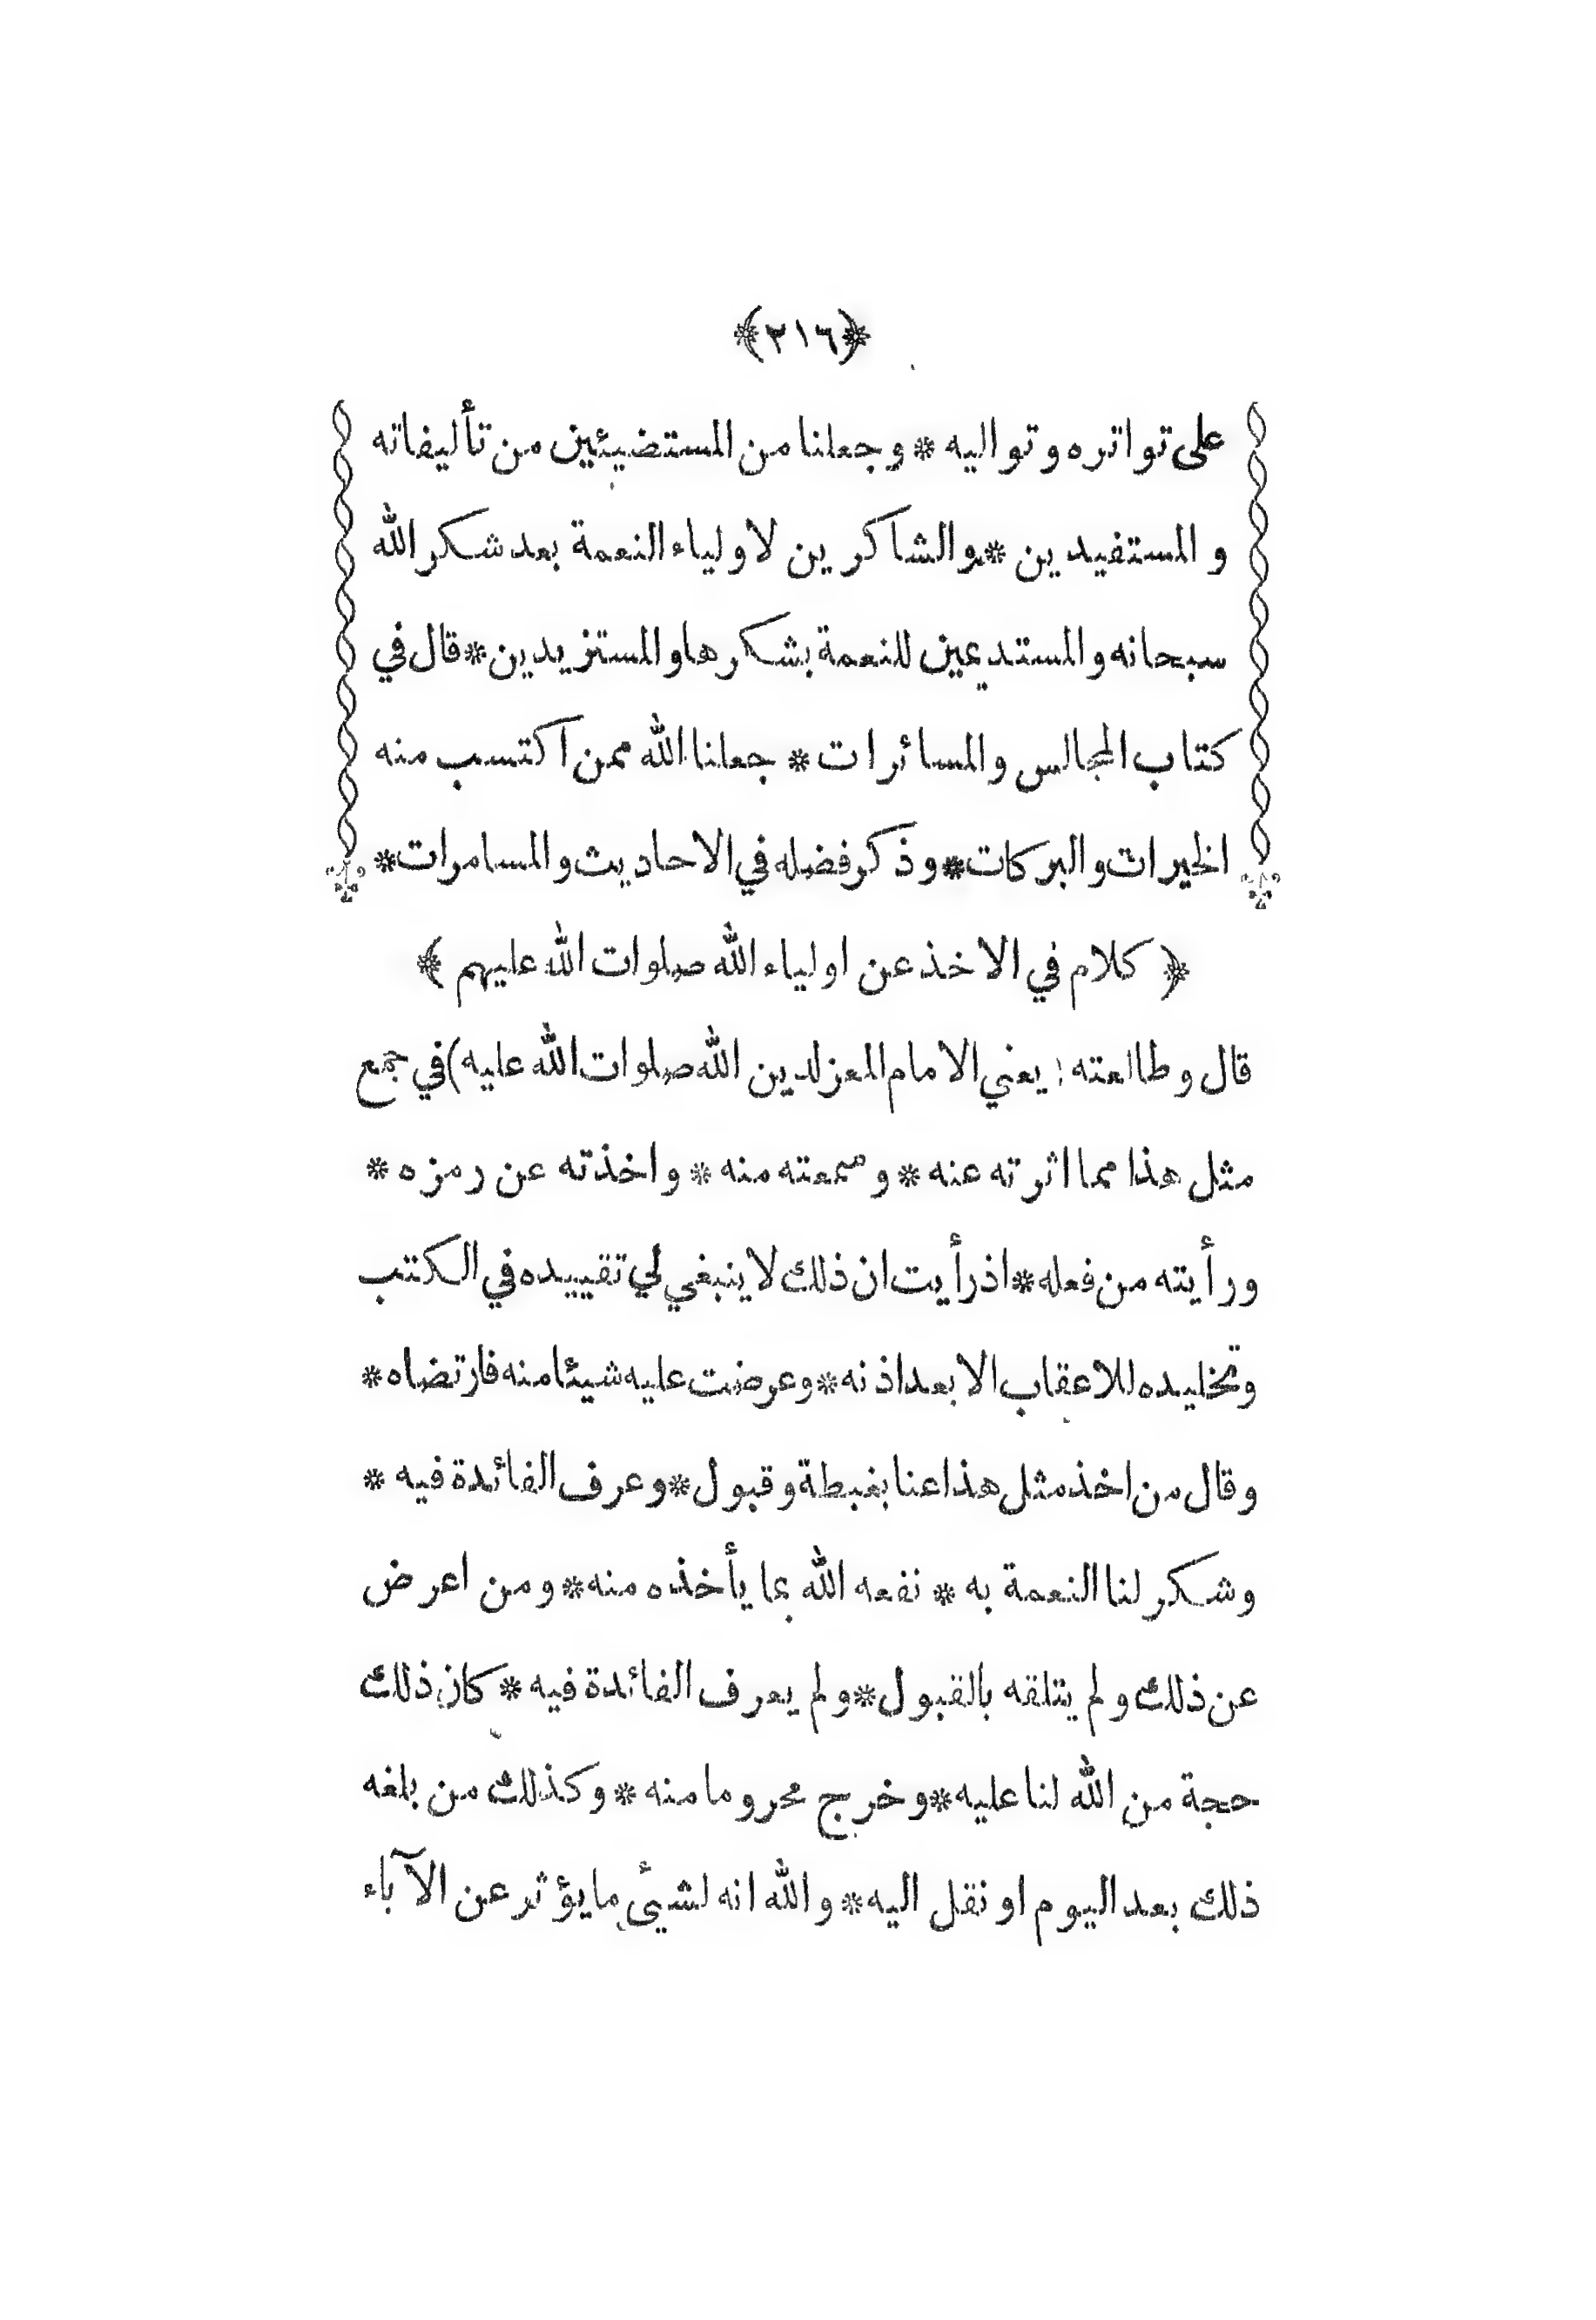 ﴿٢١٦﴾
على تواتره و تواليه * وجعلنا من المستضيئين من تأليفاته
و المستفيدين * والشاكرين لاولياء النعمة بعد شكر الله
سبحانه و المستديمين للنعمة بشكرها و المستزيدين * قال في
كتاب المجالس والمسائرات * جعلنا الله ممن اكتسب منه
الخيرات والبركات * وذكر فضله في الاحاديث والمسامرات *
﴿ كلام في الاخذ عن اولياء الله صلوات الله عليهم ﴾
قال وطالعته ( يعني الامام المعز لدين الله صلوات الله عليه ) في جمع
مثل هذا مما اثرته عنه * وسمعته منه * واخذته عن رمزه *
ورأيته من فعله * اذ رأيت ان ذلك لا ينبغي لي تقييده في الكتب
وتخليده للاعقاب الا بعد اذنه * وعرضت عليه شيئا منه فارتضاه *
وقال من اخذ مثل هذا عنا بغبطة وقبول * وعرف الفائدة فيه *
وشكر لنا النعمة به * نفعه الله بما يأخذه منه * ومن اعرض
عن ذلك ولم يتلقه بالقبول * ولم يعرف الفائدة فيه * كان ذلك
حجة من الله لنا عليه * وخرج محروما منه * وكذلك من بلغه
ذلك بعد اليوم او نقل اليه * والله انه لشيئ ما يؤثر عن الآباء